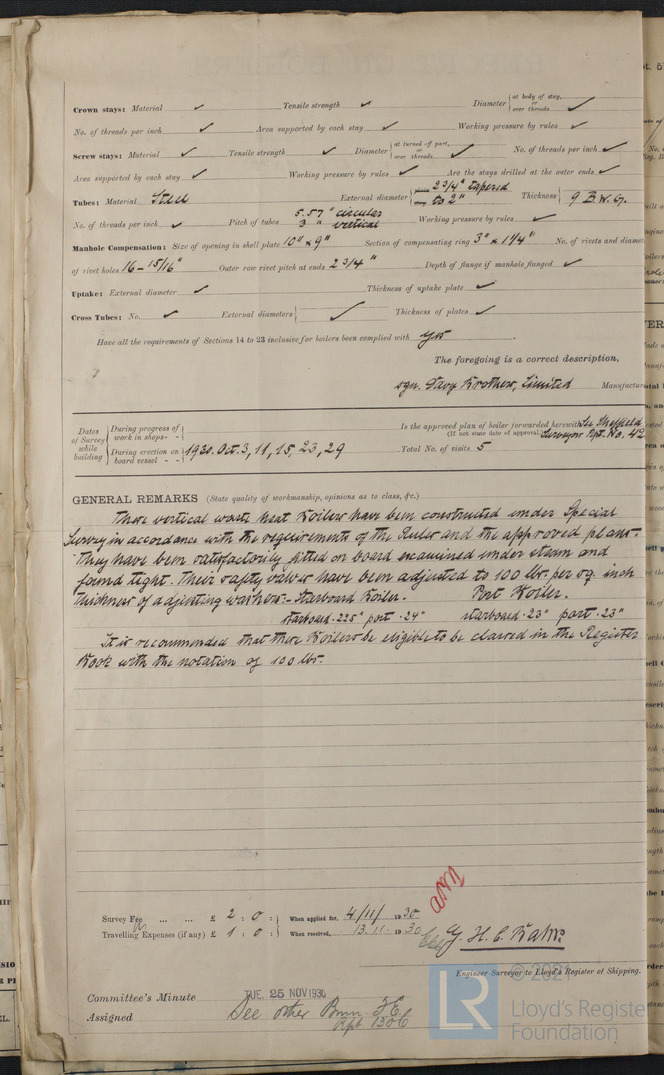 Crown stays: Material ✓ Tensile strength ✓ Diameter { at body of stay, or over threads ✓
No. of threads per inch ✓ Area supported by each stay ✓ Working pressure by rules ✓
Screw stays: Material ✓ Tensile strength ✓ Diameter { at turned off part, or over threads ✓ No. of threads per inch ✓
Area supported by each stay ✓ Working pressure by rules ✓ Are the stays drilled at the outer ends ✓
Tubes: Material Steel External diameter { 2 3/4" tapered to 2" Thickness { 9 B.W.G.
No. of threads per inch ✓ Pitch of tubes 5.57" circular 3" vertical Working pressure by rules ✓
Manhole Compensation: Size of opening in shell plate 10" x 9" Section of compensating ring 3" x 1 1/4" No. of rivets and diamet
of rivet holes 16 - 15/16" Outer row rivet pitch at ends 2 3/4" Depth of flange if manhole flanged ✓
Uptake: External diameter ✓ Thickness of uptake plate ✓
Cross Tubes: No. ✓ External diameters { ✓ Thickness of plates ✓
Have all the requirements of Sections 14 to 23 inclusive for boilers been complied with Yes
The foregoing is a correct description,
sgn. Davy Brothers, Limited Manufactur
Dates of Survey while building { During progress of work in shops - -
During erection on board vessel - - } 1930. Oct. 3, 11, 15, 23, 29
Is the approved plan of boiler forwarded herewith See Sheffield
(If not state date of approval.) Surveyors Rpt. No. 42
Total No. of visits 5
GENERAL REMARKS (State quality of workmanship, opinions as to class, &c.)
These vertical waste heat Boilers have been constructed under Special
Survey in accordance with the requirements of the Rules and the approved plans.
They have been satisfactorily fitted on board examined under steam and
found tight. Their safety valves have been adjusted to 100 lbs. per sq. inch
Thickness of adjusting washers:- Starboard Boiler. Port Boiler.
starboard .225" port .24" starboard .23" port .23"
It is recommended that these Boilers be eligible to be classed in the Register
Book with the notation of 100 lbs.
Survey Fee ... ... £ 2 : 0 : } When applied for, 4/11/ 1930
Travelling Expenses (if any) £ 1 : 0 : } When received, 13.11. 1930
Engineer Surveyor to Lloyd's Register of Shipping.
Committee's Minute TUE. 25 NOV 1930
Assigned See other
© 2021
LR Lloyd's Registe
Foundation